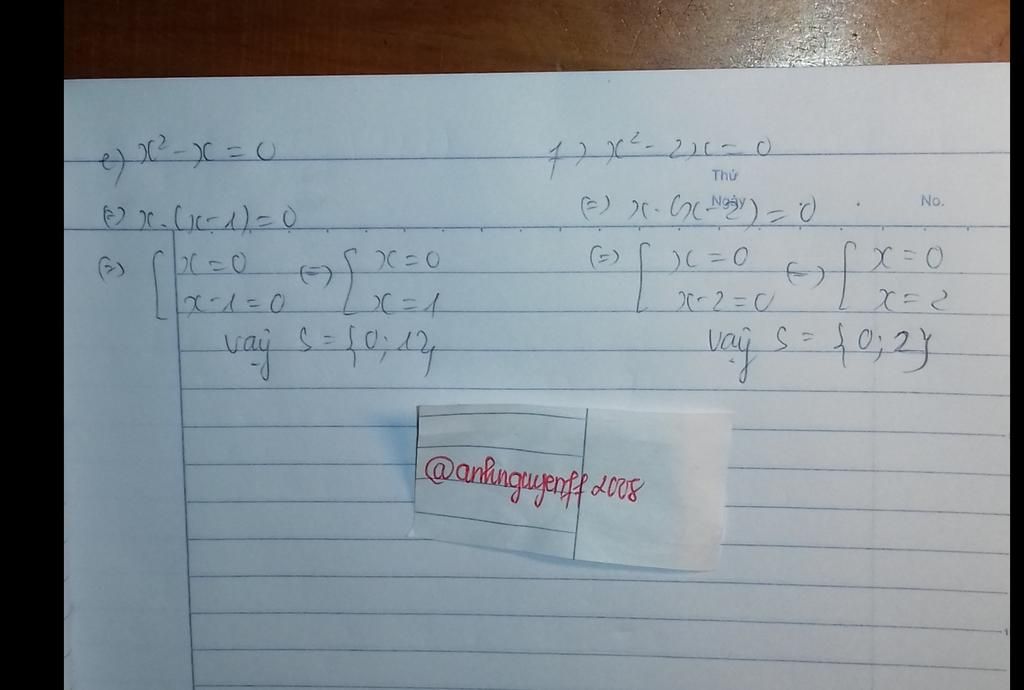 e) x² - x = 0
(=) x.(x-1) = 0
(=) [ x = 0 (=) [ x = 0
x-1 = 0 x = 1
vậy S = {0; 1}
f) x² - 2x = 0
Thứ
Ngày
No.
(=) x.(x-2) = 0
(=) [ x = 0 (=) [ x = 0
x-2 = 0 x = 2
vậy S = {0; 2}
@anhnguyenff2008